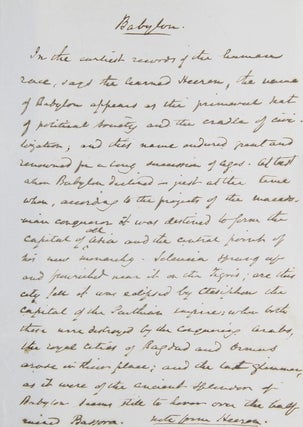 Babylon.
In the earliest records of the human
race, says the learned Heeren, the name
of Babylon appears as the primeval seat
of political society and the cradle of civi-
lization; and this name endured great and
renowned for a long succession of ages. At last
when Babylon declined – just at the time
when, according to the projects of the macedo-
nian conqueror it was destined to form the
capital of all Asia and the central point of
his new monarchy – Seleucia sprung up
and flourished near it on the Tigris; ere this
city fell it was eclipsed by Ctesiphon the
capital of the Parthian empire; when both
these were destroyed by the conquering Arabs,
the royal cities of Bagdad and Ormus
arose in their place; and the last glimmer,
as it were of the ancient splendor of
Babylon seems still to hover over the half
ruined Bassora. note from Heeren.